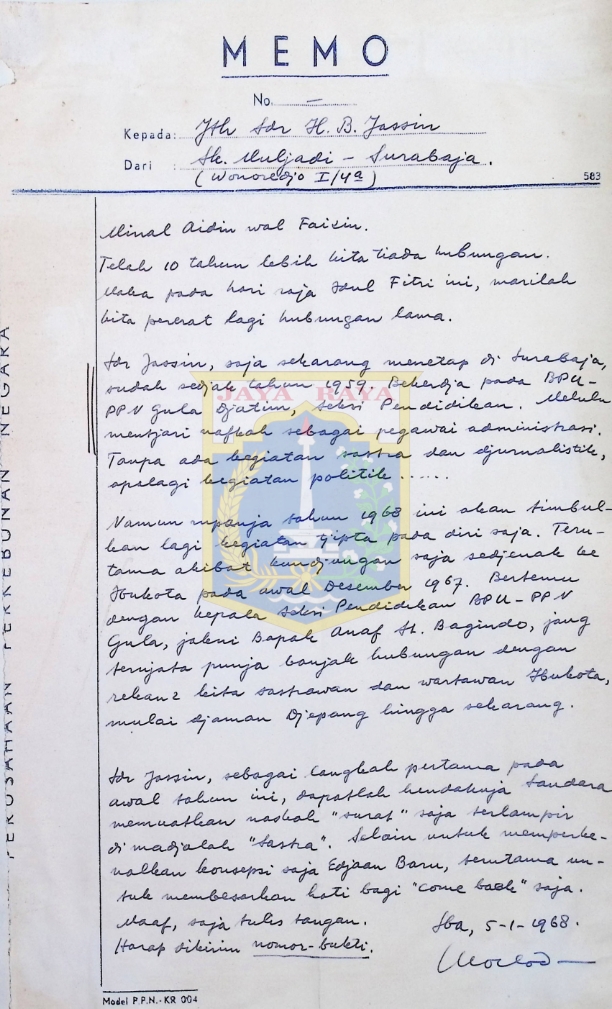 MEMO
No. —
Kepada: Jth Sdr H. B. Jassin
Dari : St. Muljadi – Surabaja.
(Wonoredjo I/4a)
583
Minal Aidin wal Faizin.
Telah 10 tahun lebih kita tiada hubungan.
Maka pada hari raja Idul Fitri ini, marilah
kita pererat lagi hubungan lama.
Sdr Jassin, saja sekarang menetap di Surabaja,
sudah sedjak tahun 1959. Bekerdja pada BPU-
PPN Gula Djatim, Seksi Pendidikan. Melulu
mentjari nafkah sebagai pegawai administrasi.
Tanpa ada kegiatan sastra dan djurnalistik,
apalagi kegiatan politik ......
Namun rupanja tahun 1968 ini akan timbul-
kan lagi kegiatan tjipta pada diri saja. Teru-
tama akibat kundjungan saja sedjenak ke
Ibukota pada awal Desember 1967. Bertemu
dengan kepala Seksi Pendidikan BPU-PPN
Gula, jakni Bapak Anaf St. Bagindo, jang
ternjata punja banjak hubungan dengan
rekan2 kita sastrawan dan wartawan Ibukota,
mulai djaman Djepang hingga sekarang.
Sdr Jassin, sebagai langkah pertama pada
awal tahun ini, dapatlah hendaknja Saudara
memuatkan naskah "surat" saja terlampir
di madjalah "Sastra". Selain untuk memperke-
nalkan konsepsi saja Edjaan Baru, terutama un-
tuk membesarkan hati bagi "come back" saja.
Maaf, saja tulis tangan.
Harap dikirim nomor-bukti.
Sba, 5-1-1968.
Model P.P.N.-KR 004
PERUSAHAAN PERKEBUNAN NEGARA
JAYA RAYA